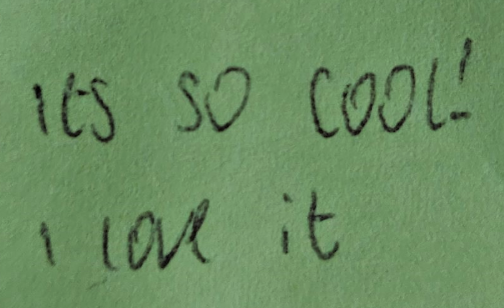 its so cool!
i love it